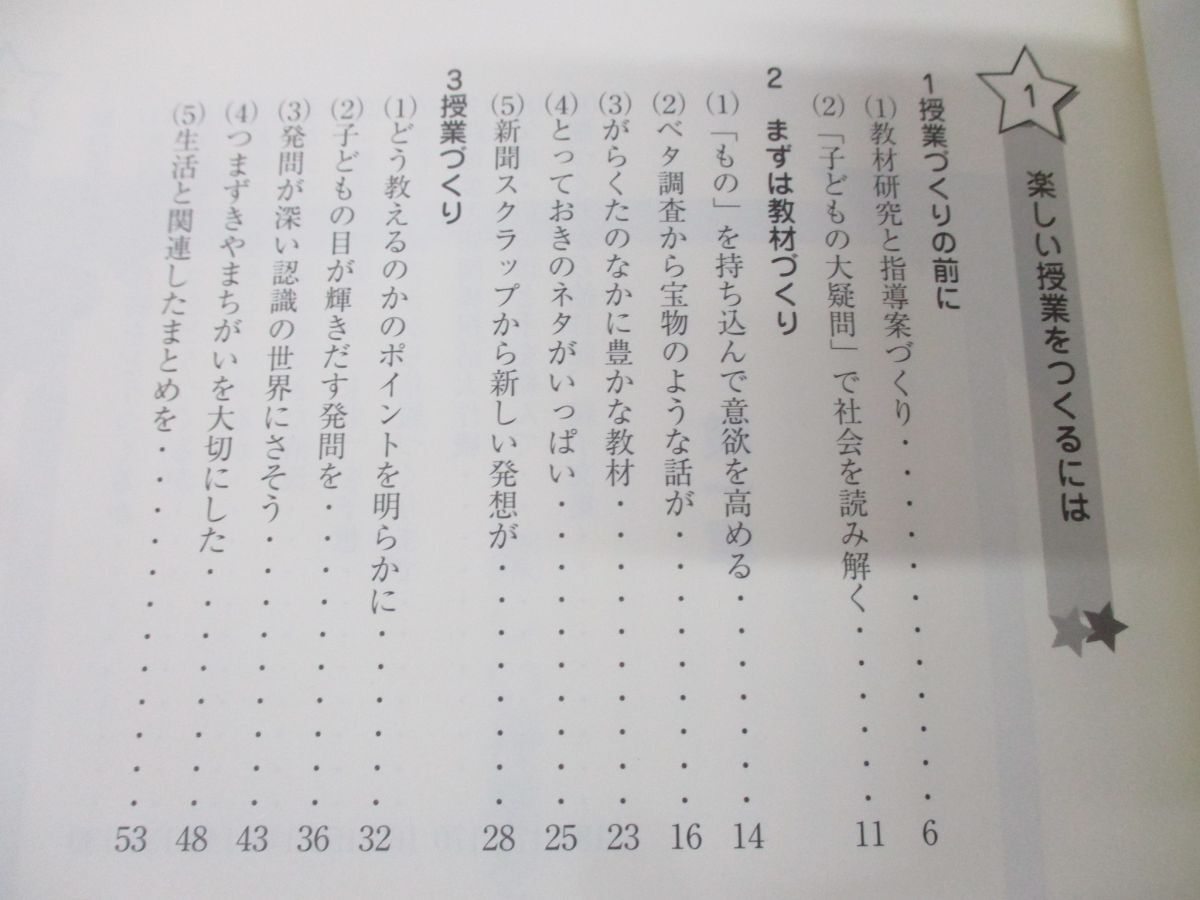 1
楽しい授業をつくるには
1 授業づくりの前に
(1)教材研究と指導案づくり・・・・・・・・・・・・6
(2)「子どもの大疑問」で社会を読み解く・・・・・・11
2 まずは教材づくり
(1)「もの」を持ち込んで意欲を高める・・・・・・・14
(2)ベタ調査から宝物のような話が・・・・・・・・・16
(3)がらくたのなかに豊かな教材・・・・・・・・・・23
(4)とっておきのネタがいっぱい・・・・・・・・・・25
(5)新聞スクラップから新しい発想が・・・・・・・・28
3 授業づくり
(1)どう教えるのかのポイントを明らかに・・・・・・32
(2)子どもの目が輝きだす発問を・・・・・・・・・・36
(3)発問が深い認識の世界にさそう・・・・・・・・・43
(4)つまずきやまちがいを大切にした・・・・・・・・48
(5)生活と関連したまとめを・・・・・・・・・・・・53